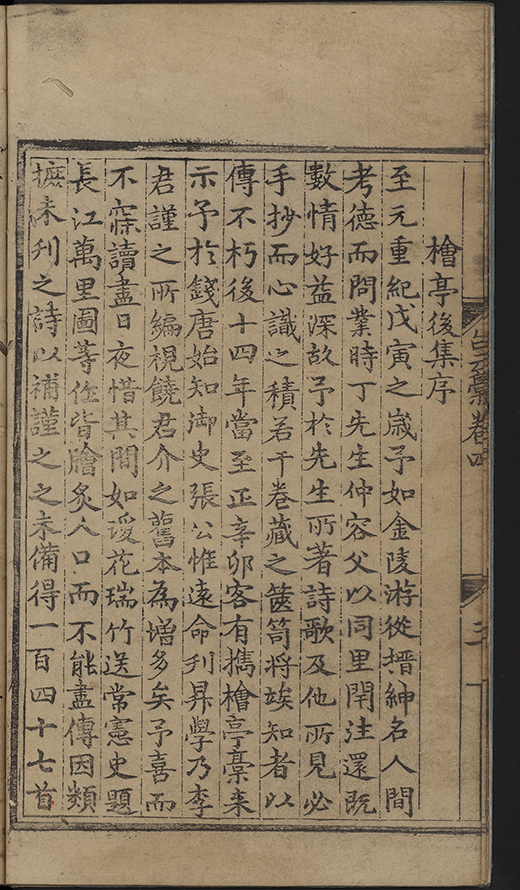 檜亭後集序
至元重紀戊寅之歲予如金陵游從搢紳名人間
考德而問業時丁先生仲容父以同里閈注還既
數情好益深故予於先生所著詩歌及他所見必
手抄而心識之積若干卷藏之篋笥將竢知者以
傳不朽後十四年當至正辛卯客有攜檜亭藁來
示予於錢唐始知御史張公惟遠命刋昇學乃李
君謹之所編視饒君介之舊本為增多矣予喜而
不寐讀盡日夜惜其間如瓊花瑞竹送常憲史題
長江萬里圖䓁作皆膾炙人口而不能盡傳因類
摭未刋之詩以補謹之之未備得一百四十七首
藁卷四
三